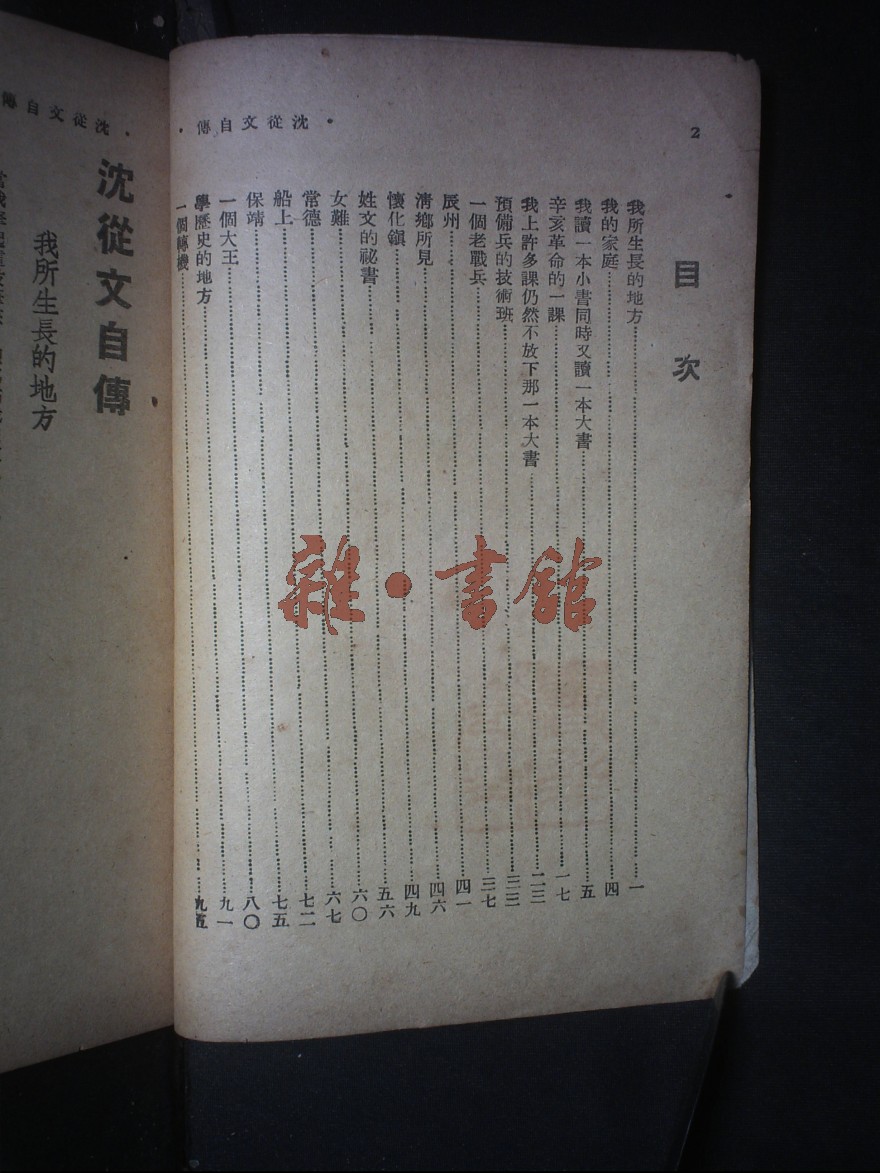 2
· 沈從文自傳 ·
目次
我所生長的地方……一
我的家庭……四
我讀一本小書同時又讀一本大書……五
辛亥革命的一課……一七
我上許多課仍然不放下那一本大書……二三
預備兵的技術班……三三
一個老戰兵……三七
辰州……四一
清鄉所見……四六
懷化鎮……四九
姓文的祕書……五六
女難……六〇
常德……六七
船上……七二
保靖……七五
一個大王……八〇
學歷史的地方……九一
一個轉機……九五
雜·書館
· 沈從文自傳
沈從文自傳
我所生長的地方